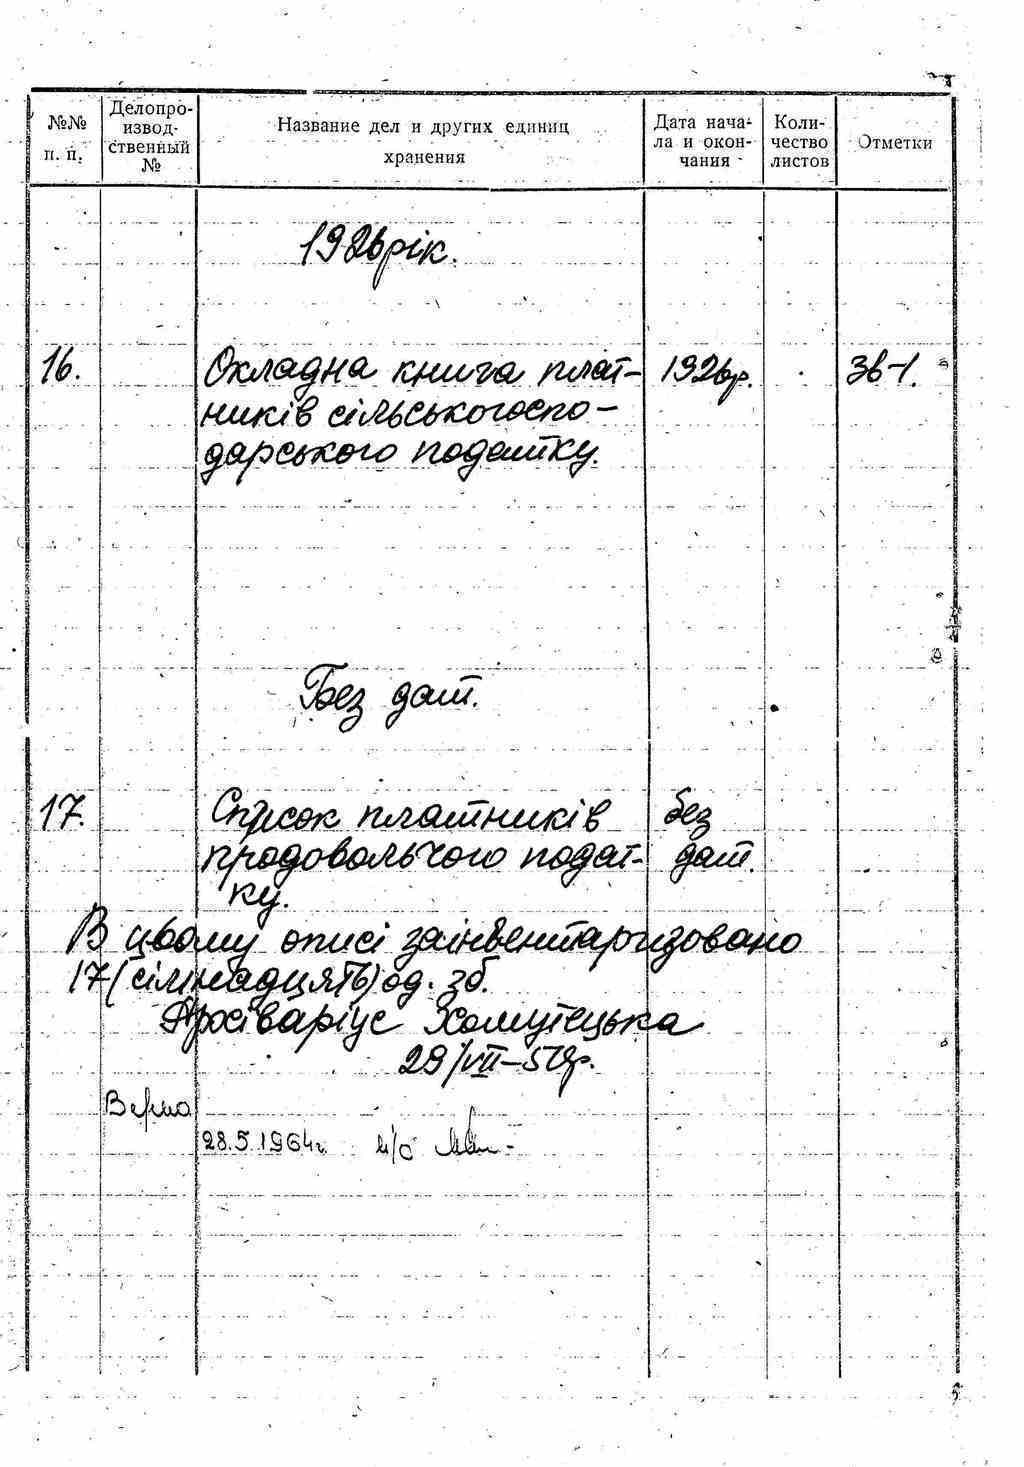 №№ п. п.
Делопро-
извод-
ственный
№
Название дел и других единиц
хранения
Дата нача-
ла и окон-
чания
Коли-
чество
листов
Отметки
1926 рік.
16. Окладна книга плат- 1926р. Зв-1.
ників сільськогоспо-
дарського податку.
Без дат.
17. Список платників без
продовольчого подат- дат.
ку.
В цьому описі заінвентаризовано
17 (сімнадцять) од. зб.
Архіваріус Хомутецька
29/VII-
Верно
28.5.1964г.